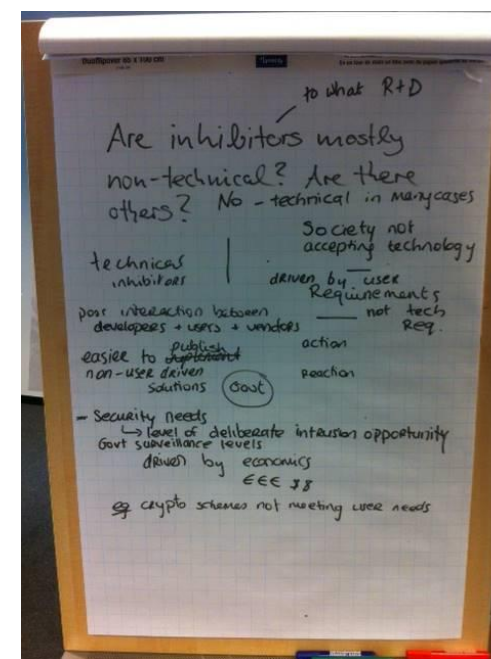 to what R+D
Are inhibitors mostly
non-technical? Are there
others? No - technical in many cases
Society not
accepting technology
technical
inhibitors
driven by user
Requirements
not tech
Req.
poor interaction between
developers + users + vendors
action
easier to publish
non-user driven
solutions
Govt
Reaction
- Security needs
↳ level of deliberate intrusion opportunity
Govt surveillance levels
driven by economics
€€€ $$
eg crypto schemes not meeting user needs